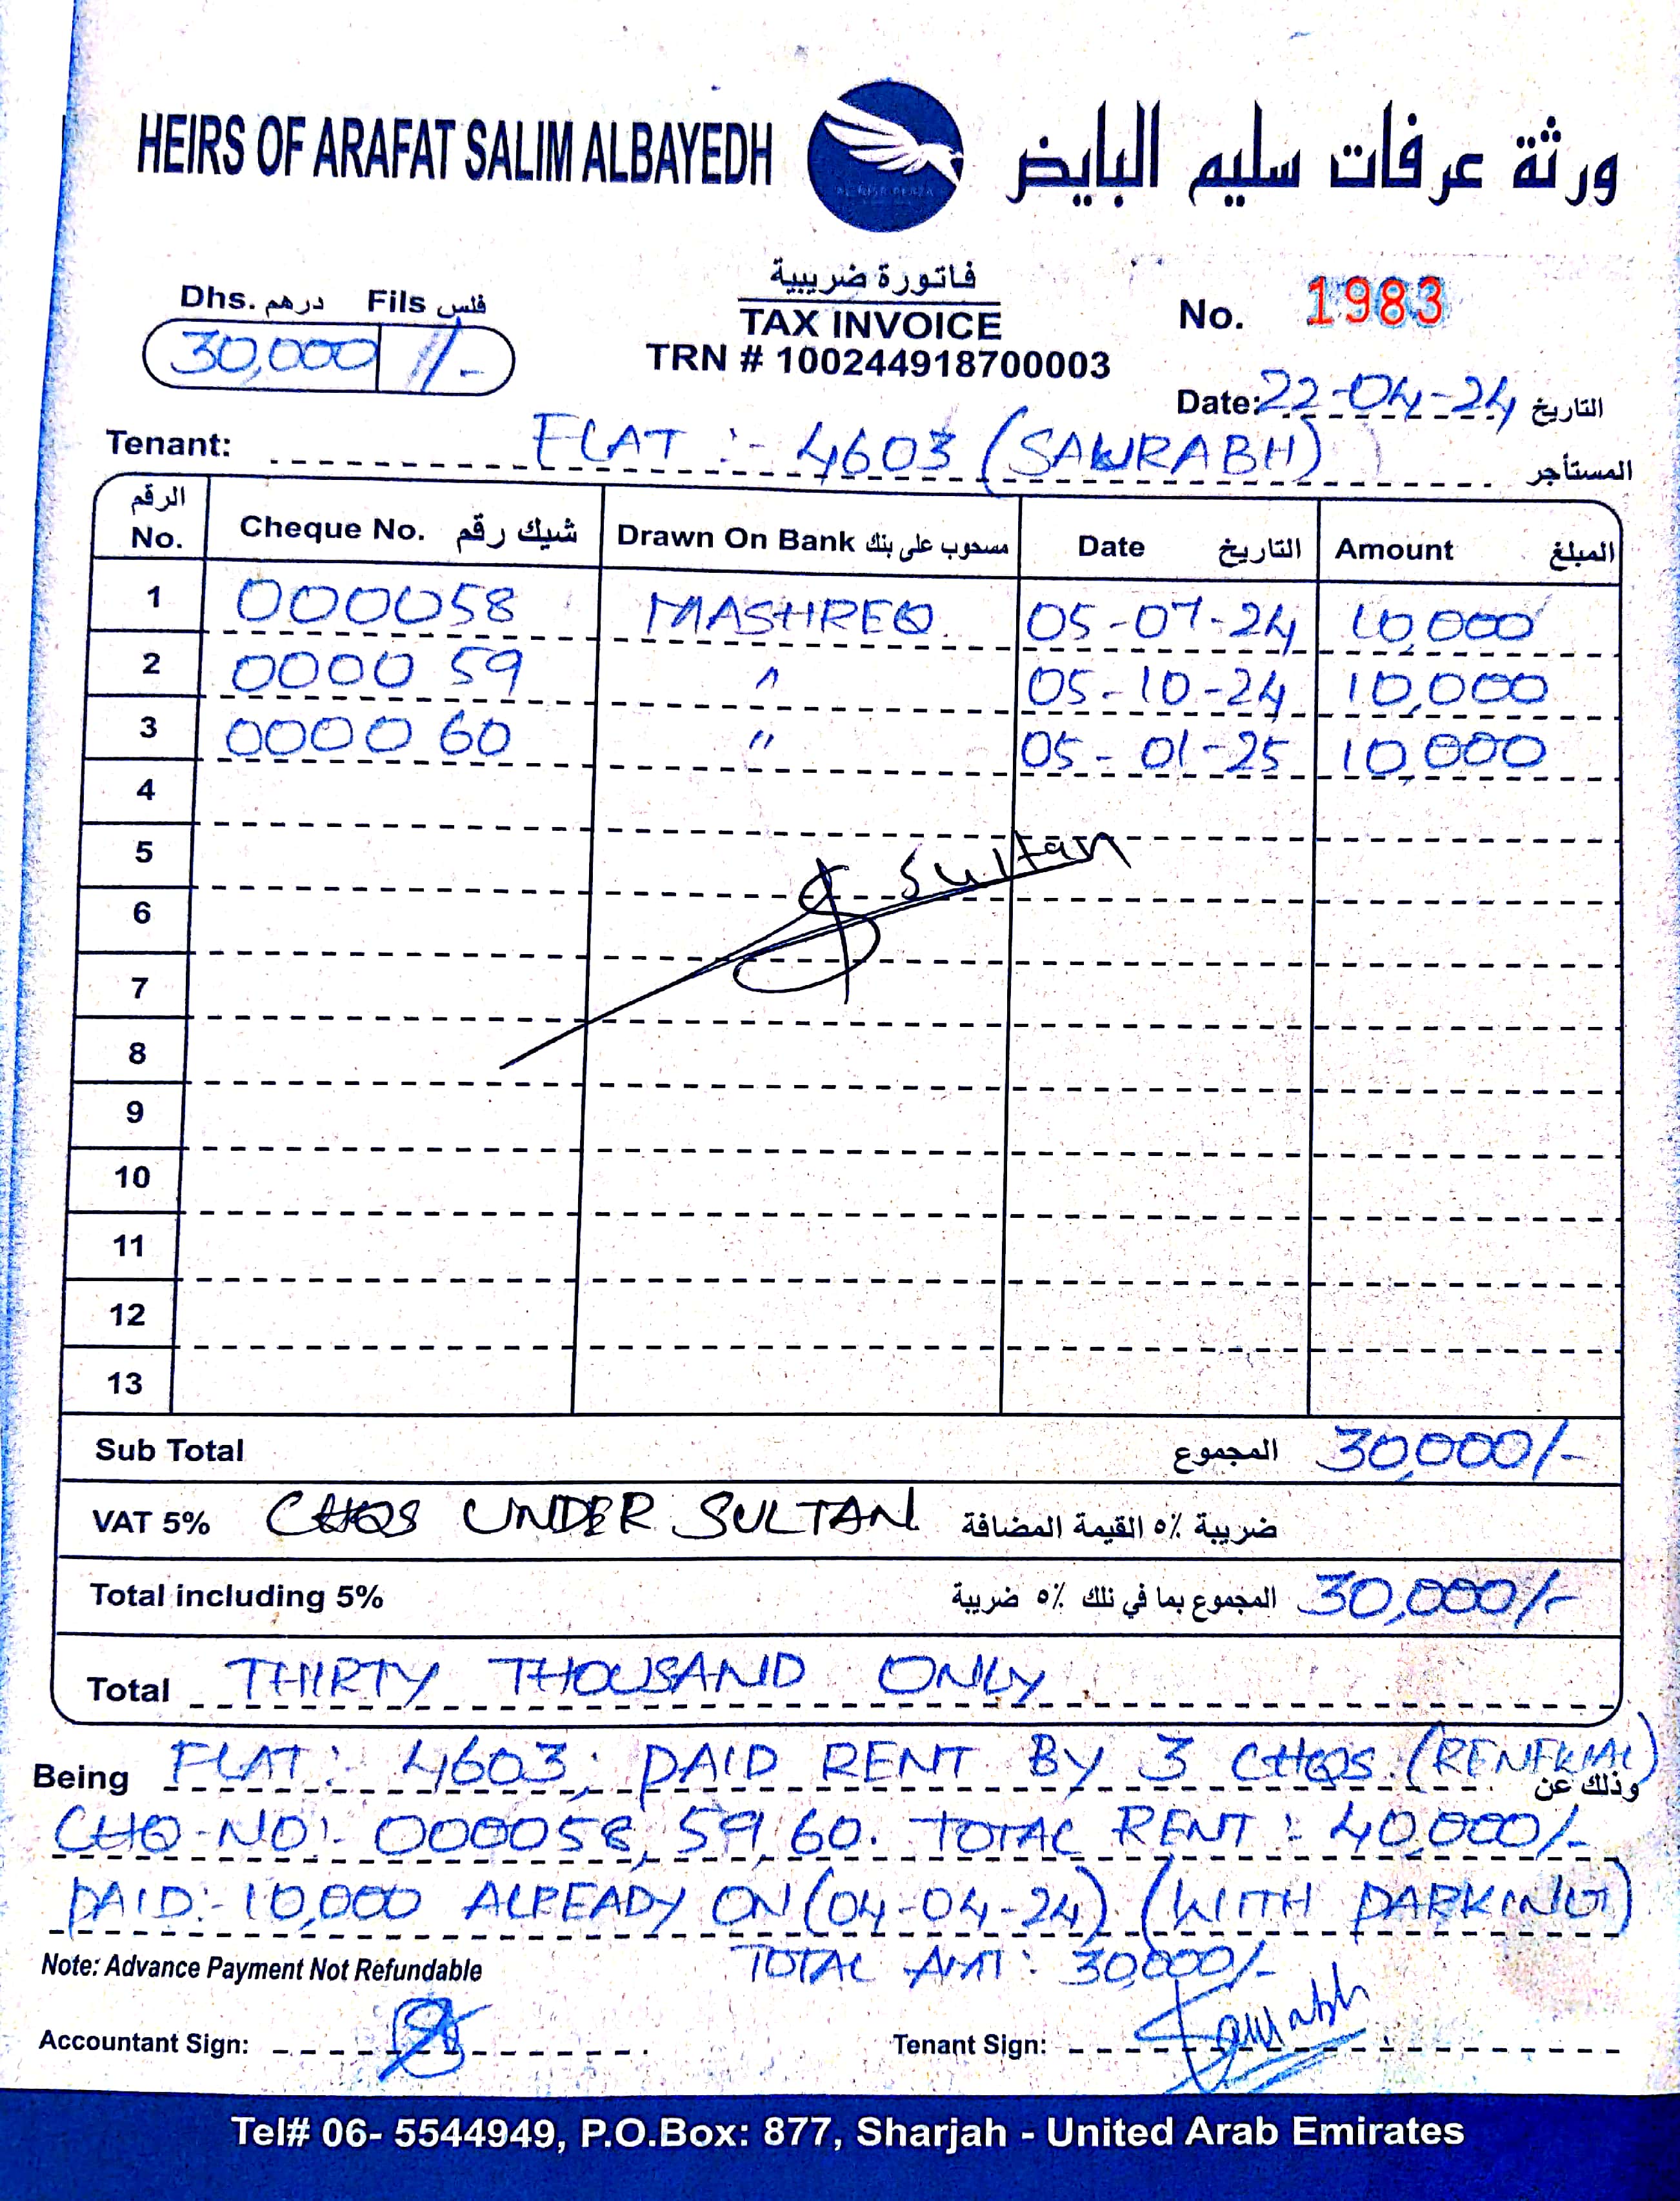 HEIRS OF ARAFAT SALIM ALBAYEDH
ورثة عرفات سليم البايض
Dhs. درهم Fils فلس
30,000 /-
فاتورة ضريبية
TAX INVOICE
TRN # 100244918700003
No. 1983
Date: 22-04-24 التاريخ
Tenant: FLAT :- 4603 (SAURABH) المستأجر
الرقم No. Cheque No. شيك رقم Drawn On Bank مسحوب على بنك Date التاريخ Amount المبلغ
1 000058 MASHREQ 05-07-24 10,000
2 000059 " 05-10-24 10,000
3 000060 " 05-01-25 10,000
4
5
Sultan
6
7
8
9
10
11
12
13
Sub Total المجموع 30,000/-
VAT 5% CHQS UNDER SULTAN ضريبة ٥٪ القيمة المضافة
Total including 5% المجموع بما في ذلك ٥٪ ضريبة 30,000/-
Total THIRTY THOUSAND ONLY
Being FLAT: 4603; PAID RENT BY 3 CHQS. (RENEWAL) وذلك عن
CHQ-NO:- 000058, 59, 60. TOTAL RENT: 40,000/-
PAID:- 10,000 ALREADY ON (04-04-24) (WITH PARKING)
Note: Advance Payment Not Refundable
TOTAL AMT: 30,000/-
Accountant Sign:
Tenant Sign: Saurabh
Tel# 06- 5544949, P.O.Box: 877, Sharjah - United Arab Emirates